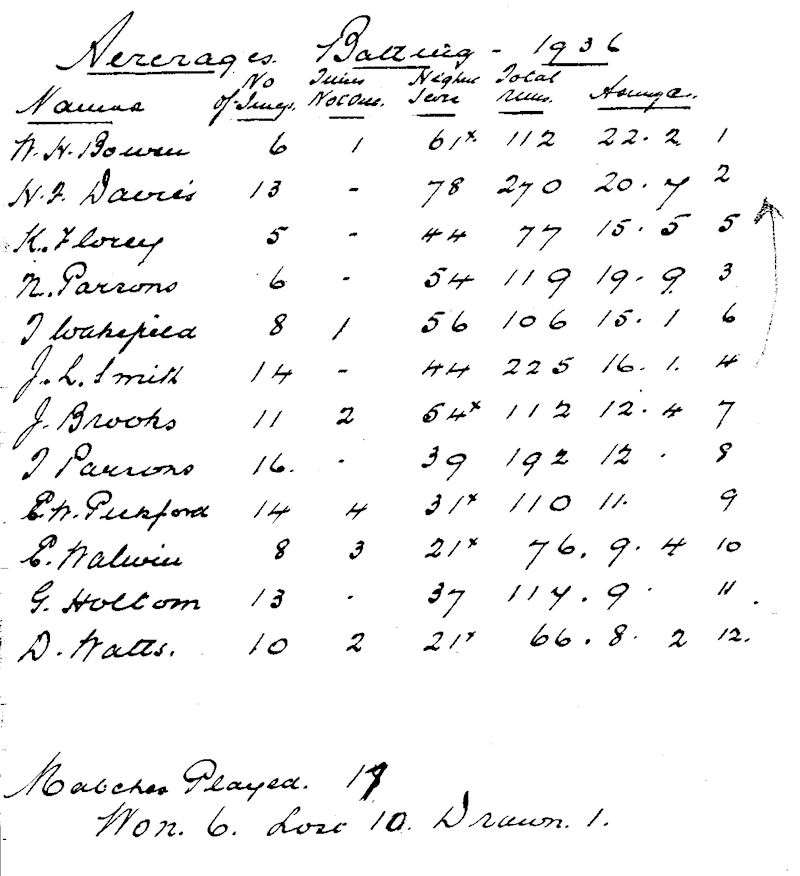 Avercrages. Batting - 1936
Names No of Inngs. Times Not Out. Highest Score Total runs. Average.
W. H. Bowen 6 1 61x 112 22. 2 1
H. J. Davies 13 - 78 270 20. 7 2
K. Florey 5 - 44 77 15. 5 5
N. Parsons 6 - 54 119 19. 9 3
J Wakefield 8 1 56 106 15. 1 6
J. L. Smith 14 - 44 225 16. 1. 4
J. Brooks 11 2 54x 112 12. 4 7
J Parsons 16. - 39 192 12 . 8
E. W. Peckford 14 4 31x 110 11. 9
E. Walwin 8 3 21x 76. 9. 4 10
G. Holtom 13 . 37 117. 9 . 11.
D. Watts. 10 2 21x 66. 8. 2 12.
Matches Played. 17
Won. 6. Lost 10. Drawn. 1.